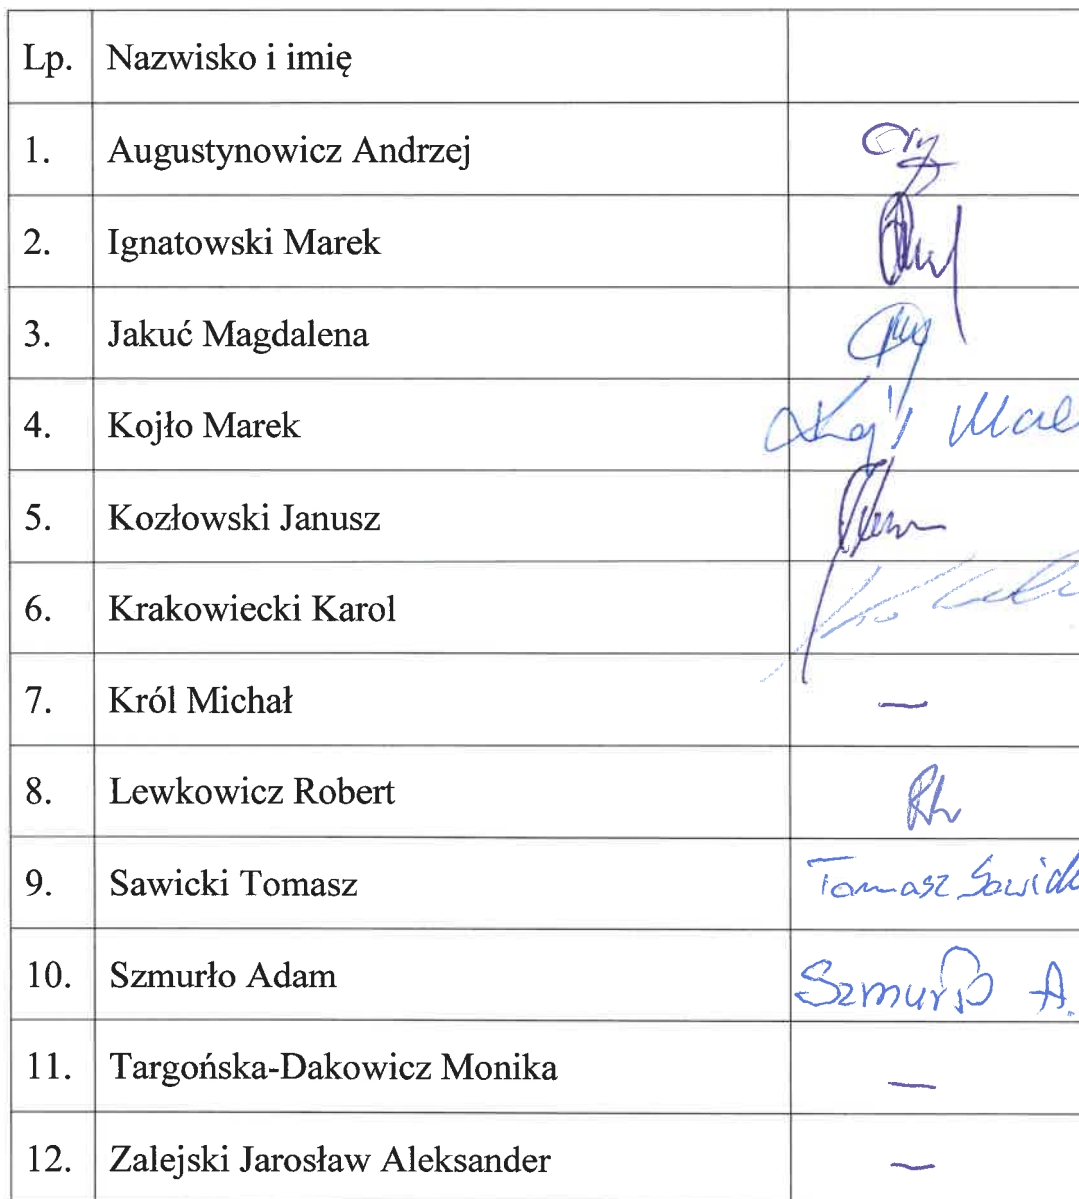 Lp. Nazwisko i imię
1. Augustynowicz Andrzej
2. Ignatowski Marek
3. Jakuć Magdalena
4. Kojło Marek
5. Kozłowski Janusz
6. Krakowiecki Karol
7. Król Michał —
8. Lewkowicz Robert
9. Sawicki Tomasz Tomasz
10. Szmurło Adam Szmurło A.
11. Targońska-Dakowicz Monika —
12. Zalejski Jarosław Aleksander —